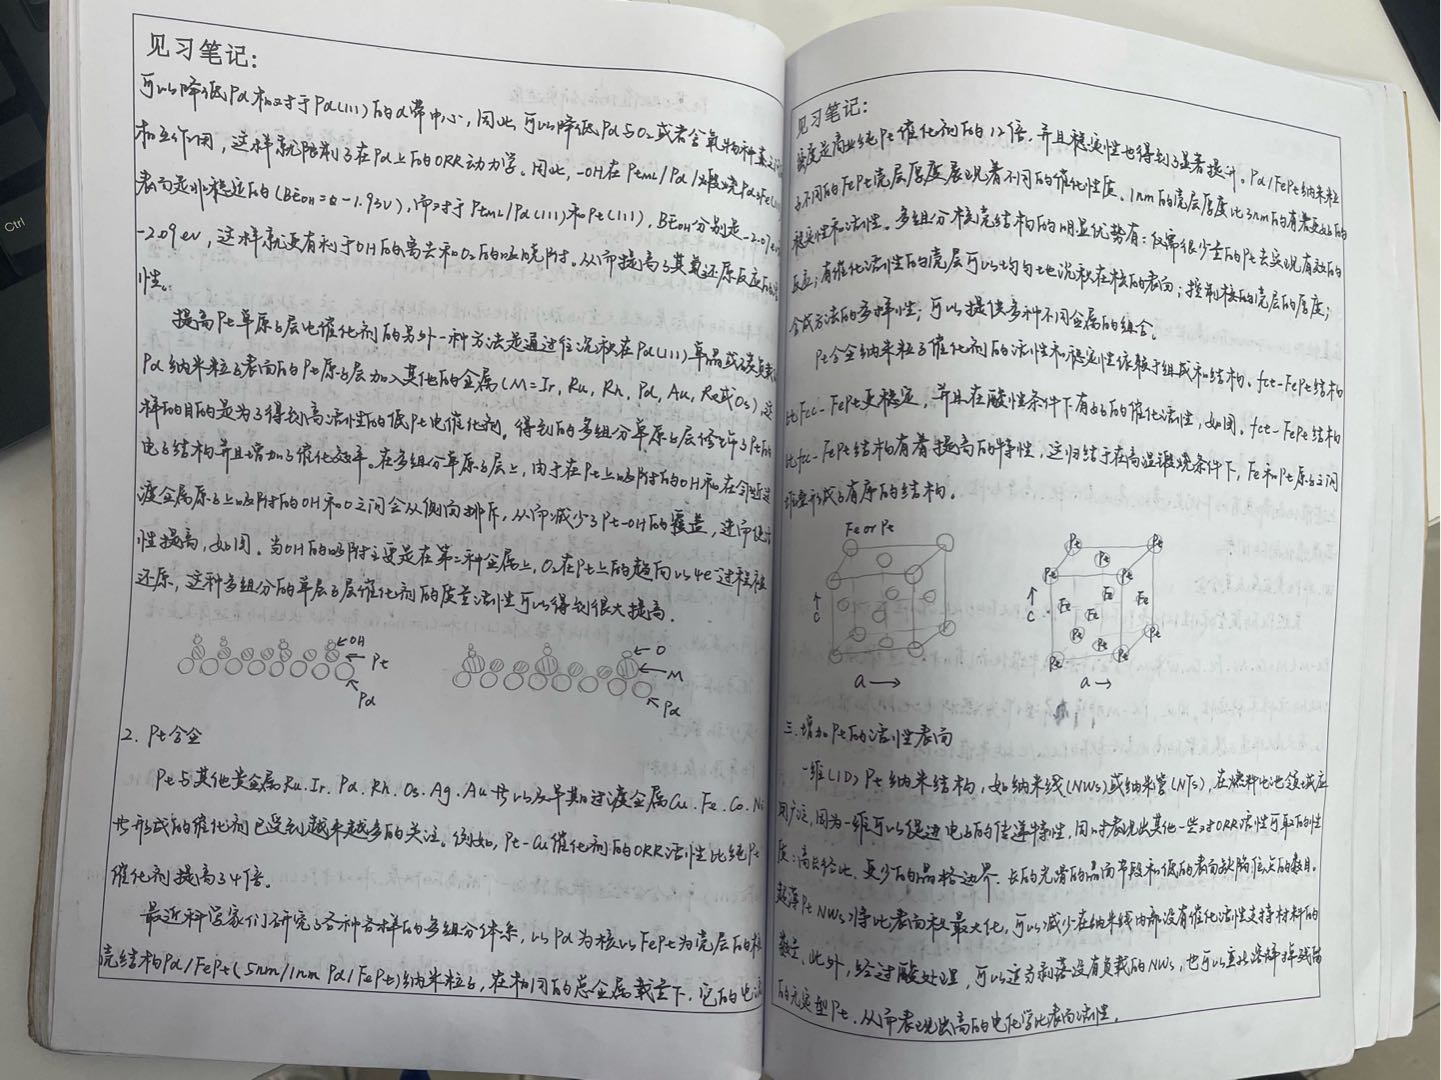 Ctrl
见习笔记:
可以降低Pd相对于Pd(111)的d带中心,因此可以降低Pd与O₂或者含氧物种
相互作用,这样就限制了在Pd上的ORR动力学。因此,-OH在PtML/Pd/
表面是 稳定的(BEOH= -1.93V),而对于PtML/Pd(111)和Pt(111),BEOH分别是-2.
-2.09 eV,这样就更有利于OH的离去和O₂的吸脱附。从而提高了其氧还原反应的
性。
提高Pt单原子层电催化剂的另外一种方法是通过往沉积在Pd(111)单晶或碳负载
Pd纳米粒子表面的Pt原子层加入其他的金属(M=Ir, Ru, Rh, Pd, Au, Re或Os),这
样的目的是为了得到高活性的低Pt电催化剂。得到的多组分单原子层修饰了Pt的
电子结构并且增加了催化效率。在多组分单原子层上,由于在Pt上吸附的OH和在邻近过
渡金属原子上吸附的OH和O之间会从侧向排斥,从而减少了Pt-OH的覆盖,进而使活
性提高,如图。当OH的吸附主要是在第二种金属上,O₂在Pt上的趋向以4e⁻过程被
还原,这种多组分的单层子层催化剂的质量活性可以得到很大提高.
OH
Pt
Pd
O
M
Pd
2. Pt合金
Pt与其他贵金属Ru.Ir.Pd.Rh.Os.Ag.Au共以及早期过渡金属Cu.Fe.Co.Ni
共形成的催化剂已受到越来越多的关注。例如,Pt-Cu催化剂的ORR活性比纯Pt
催化剂提高了4倍。
最近科学家们研究了各种各样的多组分体系,以Pd为核以FePt为壳层的核
壳结构Pd/FePt(5nm/1nm Pd/FePt)纳米粒子,在相同的总金属载量下,它的电流
见习笔记:
密度是商业纯Pt催化剂的12倍,并且稳定性也得到了显著提升。Pd/FePt纳米粒
子不同的FePt壳层厚度展现着不同的催化性质。1nm的壳层厚度比3nm的有着更好的
稳定性和活性。多组分核壳结构的明显优势有:仅需很少量的Pt去实现有效的
反应;有催化活性的壳层可以均匀地沉积在核的表面;控制核的壳层的厚度;
合成方法的多样性;可以提供多种不同金属的组合。
Pt合金纳米粒子催化剂的活性和稳定性依赖于组成和结构。fct-FePt结构
比fcc-FePt更稳定,并且在酸性条件下有好的催化活性,如图。fct-FePt结构
比fcc-FePt结构有着提高的特性,这归结于在高温煅烧条件下,Fe和Pt原子之间
堆叠形成了有序的结构。
Fe or Pt
c
a
Pt
Pt
Pt
Pt
Pt
Fe
Fe
Fe
Fe
c
Pt
Pt
Pt
Pt
Pt
a
三.增加Pt的活性表面
一维(1D)Pt纳米结构,如纳米线(NWs)或纳米管(NTs),在燃料电池领域应
用广泛,因为一维可以促进电子的传递特性,同时表现出其他一些对ORR活性可取的性
质:高长径比、更少的晶格边界、长的光滑的晶面片段和低的表面缺陷位点的数目。
超薄Pt NWs将比表面积最大化,可以减少在纳米线内部没有催化活性支持材料的
数量,此外,经过酸处理,可以 剥落没有负载的NWs,也可以 溶解掉残留
的无定型Pt.从而表现出高的电化学比表面活性.